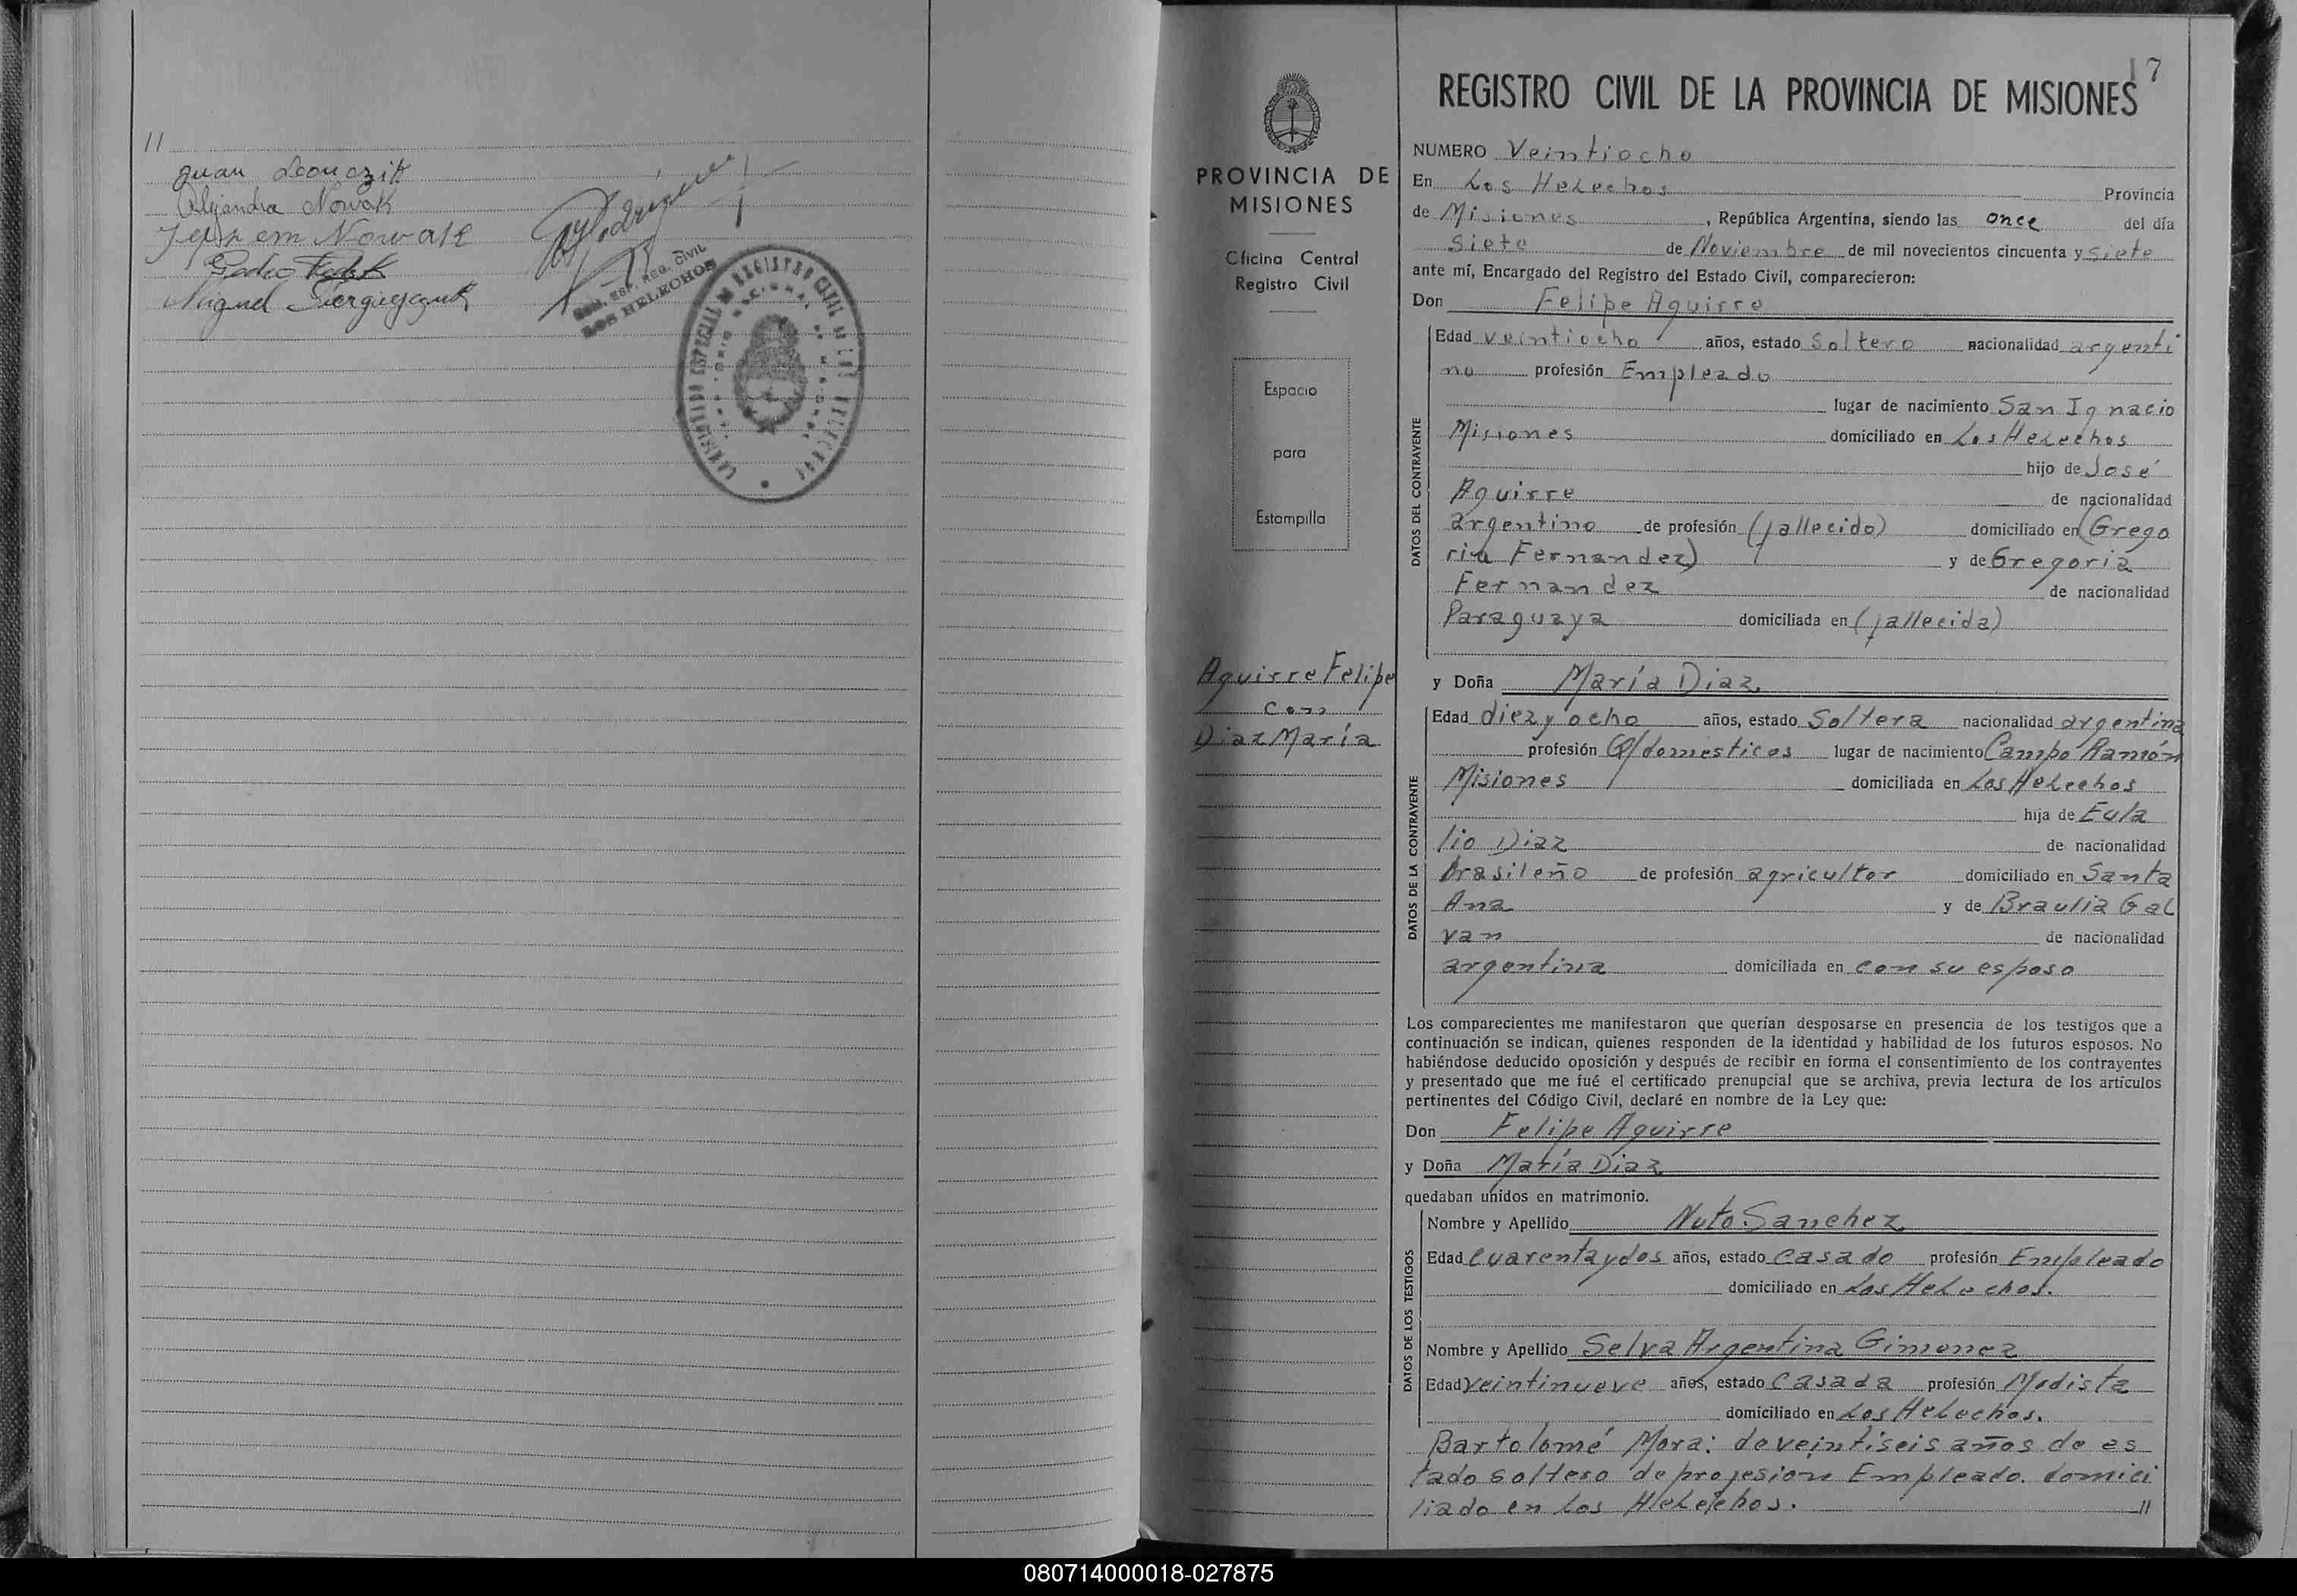 //
Juan Leonczik
Alejandra Nowak
Nowak
Pedro
Miguel
REG. CIVIL
LOS HELECHOS
17
REGISTRO CIVIL DE LA PROVINCIA DE MISIONES
PROVINCIA DE
MISIONES
Oficina Central
Registro Civil
Espacio
para
Estampilla
Aguirre Felipe
con
Diaz María
NUMERO Veintiocho
En Los Helechos Provincia
de Misiones, República Argentina, siendo las once del día
siete de Noviembre de mil novecientos cincuenta y siete
ante mí, Encargado del Registro del Estado Civil, comparecieron:
Don Felipe Aguirre
DATOS DEL CONTRAYENTE
Edad veintiocho años, estado Soltero nacionalidad argenti
no profesión Empleado
lugar de nacimiento San Ignacio
Misiones domiciliado en Los Helechos
hijo de José
Aguirre de nacionalidad
argentino de profesión (fallecido) domiciliado en (Grego
ria Fernandez) y de Gregoria
Fernandez de nacionalidad
Paraguaya domiciliada en (fallecida)
y Doña María Diaz.
DATOS DE LA CONTRAYENTE
Edad diez y ocho años, estado Soltera nacionalidad argentina
profesión Q/domesticos lugar de nacimiento Campo Ramón
Misiones domiciliada en Los Helechos
hija de Eula
lio Diaz de nacionalidad
brasileño de profesión agricultor domiciliado en Santa
Ana y de Braulia Gal
van de nacionalidad
argentina domiciliada en con su esposo
Los comparecientes me manifestaron que querían desposarse en presencia de los testigos que a
continuación se indican, quienes responden de la identidad y habilidad de los futuros esposos. No
habiéndose deducido oposición y después de recibir en forma el consentimiento de los contrayentes
y presentado que me fué el certificado prenupcial que se archiva, previa lectura de los artículos
pertinentes del Código Civil, declaré en nombre de la Ley que:
Don Felipe Aguirre
y Doña María Diaz
quedaban unidos en matrimonio.
DATOS DE LOS TESTIGOS
Nombre y Apellido Nuto Sanchez
Edad cuarenta y dos años, estado casado profesión Empleado
domiciliado en Los Helechos.
Nombre y Apellido Selva Argentina Gimenez
Edad veintinueve años, estado casada profesión Modista
domiciliado en Los Helechos.
Bartolomé Mora: de veintiseis años de es
tado soltero de profesión Empleado. domici
liado en Los Helechos. //
080714000018-027875